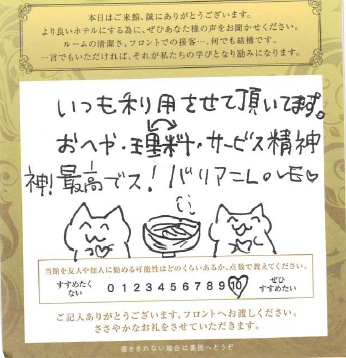 本日はご来館、誠にありがとうございます。
より良いホテルにする為に、ぜひあなた様の声をお聞かせください。
ルームの清潔さ、フロントでの接客…、何でも結構です。
一言でもいただければ、それが私たちの学びとなり励みになります。
いつも利用させて頂いてます。
おへや・理料・サービス精神
神!最高でス!バリアニしいモ♡
当館を友人や知人に勧める可能性はどのくらいあるか、点数で教えてください。
すすめたくない 0 1 2 3 4 5 6 7 8 9 10 ぜひすすめたい
ご記入ありがとうございます。フロントへお渡しください。
ささやかなお礼をさせていただきます。
書ききれない場合は裏面へどうぞ